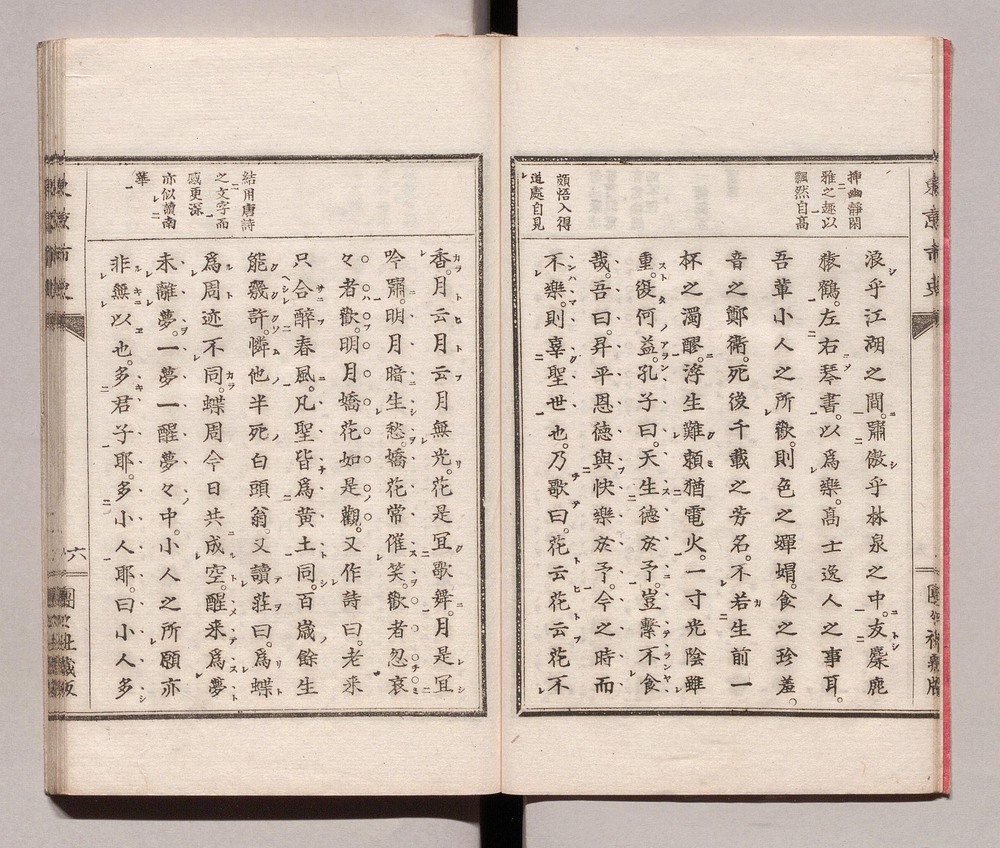 挿幽靜閑
雅之趣以
飄然自高
頗悟入得
道處自見
浪乎江湖之間。嘯傲乎林泉之中。友麋鹿
猿鶴。左右琴書。以爲樂。高士逸人之事耳。
吾輩小人之所歡。則色之嬋娟。食之珍羞。
音之鄭衛。死後千載之芳名。不若生前一
杯之濁醪。浮生難賴猶電火。一寸光陰雖
重。復何益。孔子曰。天生德於予。豈繫不食
哉。吾曰。昇平恩德與快樂於予。今之時而
不樂。則辜聖世也。乃歌曰。花云花云花不
結用唐詩
之文字而
感更深
亦似讀南
華
香。月云月云月無光。花是宜歌舞。月是宜
吟嘯。明月暗生愁。嬌花常催笑。歡者忽哀
々者歡。明月嬌花如是觀。又作詩曰。老來
只合醉春風。凡聖皆爲黄土同。百歳餘生
能幾許。憐他半死白頭翁。又讀莊曰。爲蝶
爲周迹不同。蝶周今日共成空。醒来爲夢
未離夢。一夢一醒夢々中。小人之所願亦
非無以也。多君子耶。多小人耶。曰小人多
六